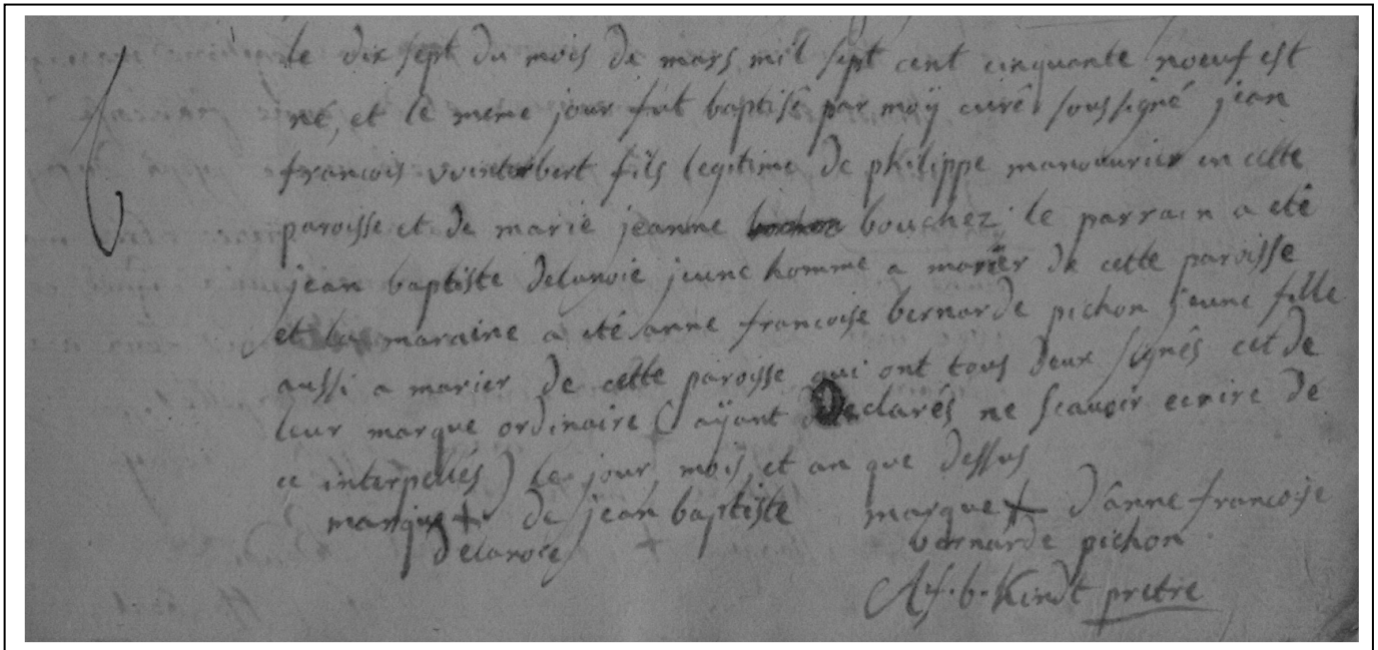 le dix sept du mois de mars mil sept cent cinquante noeuf est
né, et le meme jour fut baptisé par moÿ curé soussigné jean
francois vvinterbert fils legitime de philippe manouvrier en cette
paroisse et de marie jeanne bouchez le parrain a eté
jean baptiste delanoie jeune homme a marier de cette paroisse
et la maraine a eté anne francoise bernarde pichon jeune fille
aussi a marier de cette paroisse qui ont tous deux signés cet de
leur marque ordinaire (aÿant declarés ne scavoir ecrire de
ce interpellés) le jour mois et an que dessus
marque + de jean baptiste marque + d'anne francoise
delanoie bernarde pichon
kindt pretre